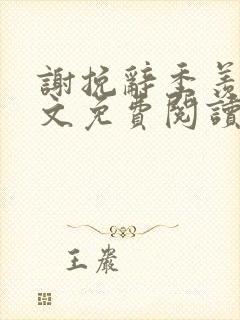 謝挽辭季羨
文免費閱讀
王巖